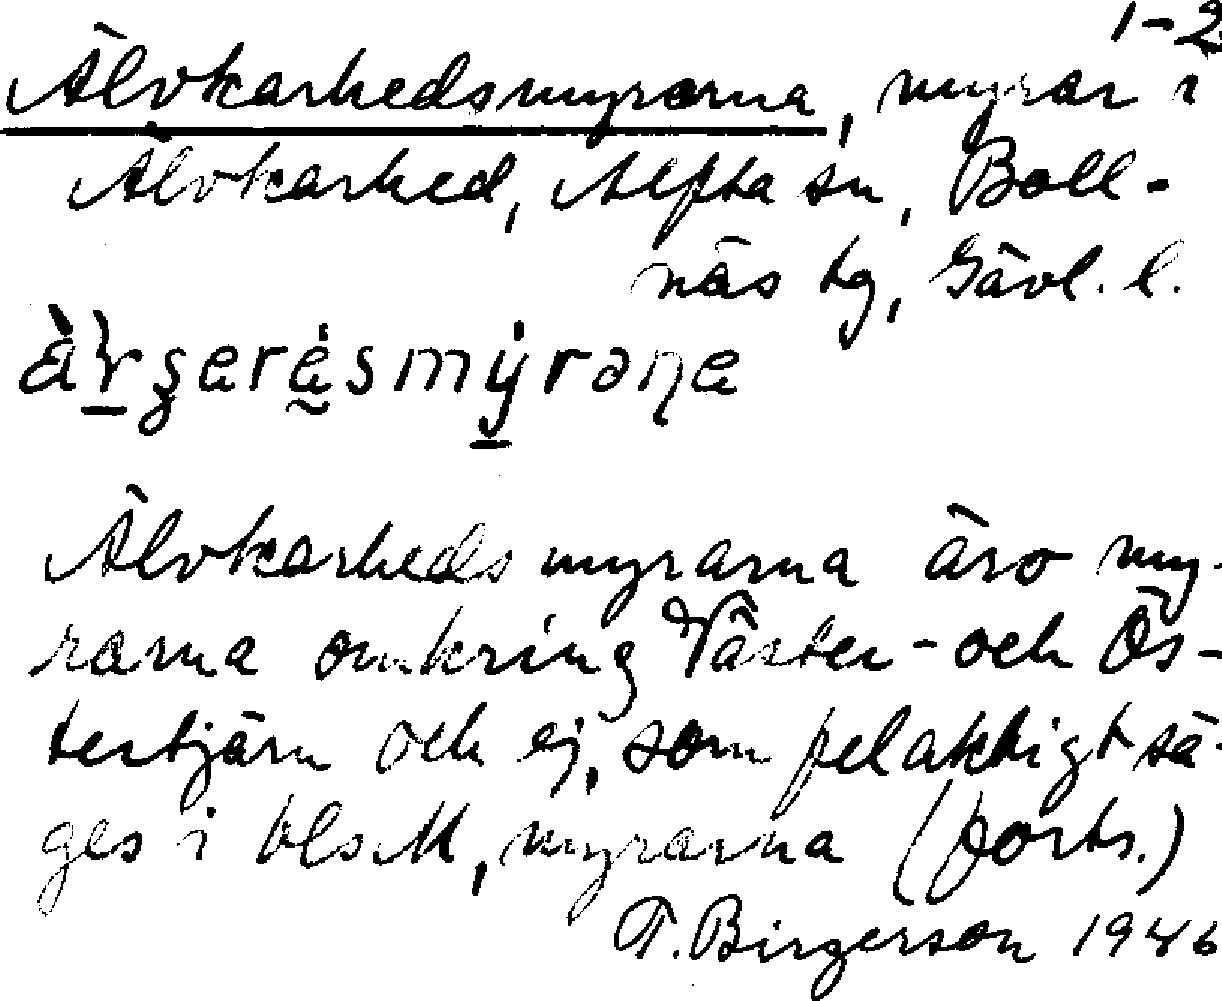 1-2
Älvkarhedsmyrarna, myrar i
Älvkarhed, Alfta sn, Boll-
näs tg, Gävl. l.
Älvkarhedsmyrarna äro my-
rarna omkring Väster- och Ös-
tertjärn och ej, som felaktigt sä-
ges i OlsM, myrarna (forts.)
T. Birgerson 1946